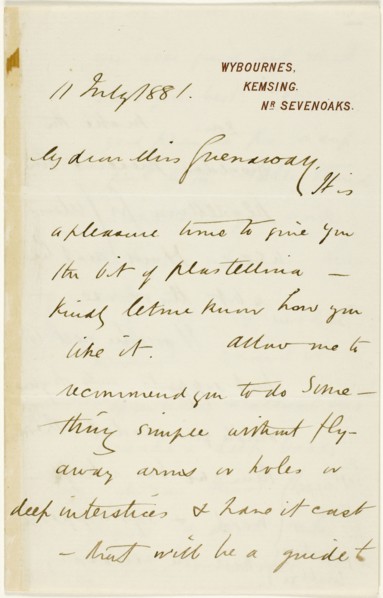 WYBOURNES,
KEMSING.
NR SEVENOAKS.
11 July 1881.
My dear Miss Greenaway,
It is
a pleasure to me to give you
the bit of plastellina —
Kindly let me know how you
like it. Allow me to
recommend you to do Some-
thing simple without fly-
away arms or holes or
deep interstices & have it cast
— that will be a guide to